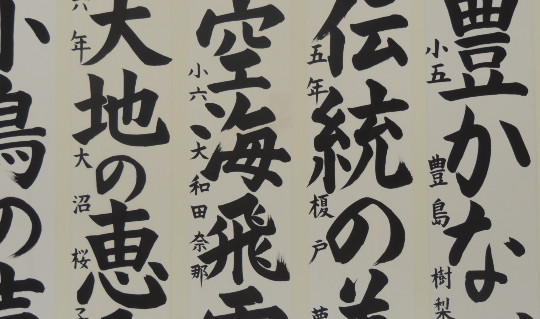 豊かな
小五 豊島 樹梨
伝統の美
五年 榎戸
空海飛雲
小六 大和田 奈那
大地の恵
六年 大沼 桜子
小鳥の